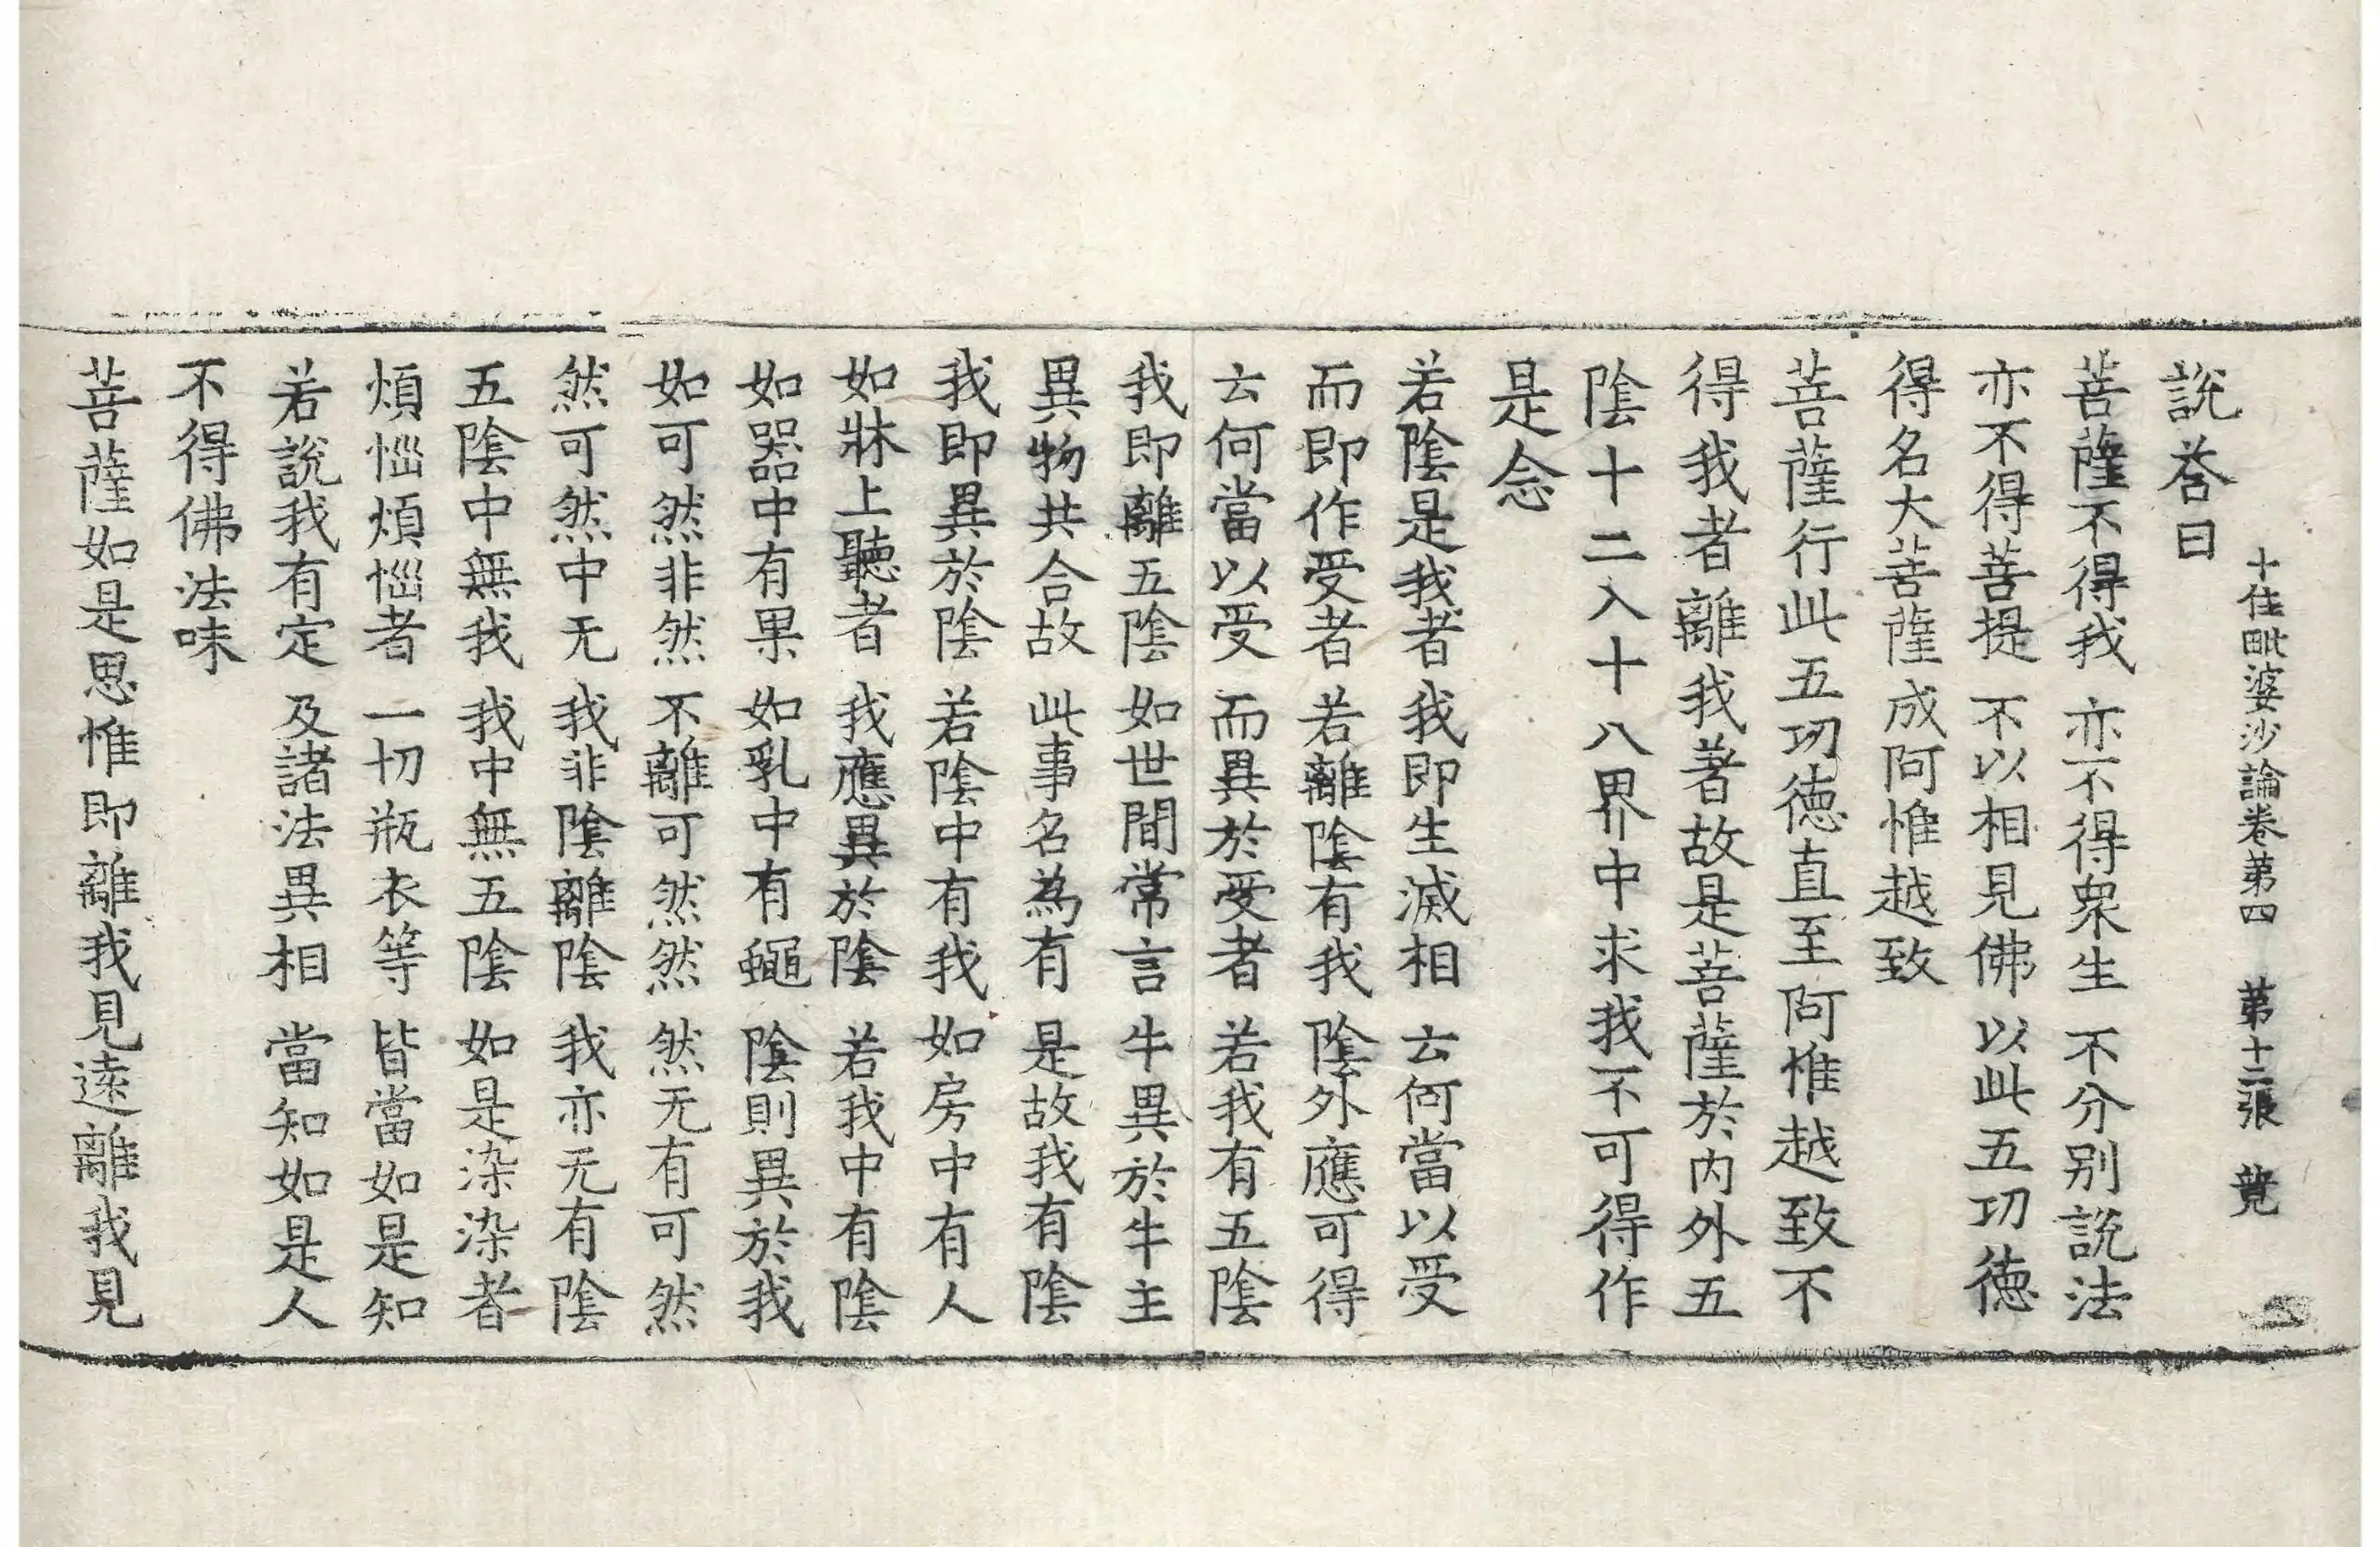 十住毗婆沙論卷第四　第十二張　覽
說荅曰
菩薩不得我　亦不得衆生　不分别說法
亦不得菩提　不以相見佛　以此五㓛德
得名大菩薩　成阿惟越致
菩薩行此五㓛德直至阿惟越致不
得我者離我著故是菩薩於內外五
陰十二入十八界中求我不可得作
是念
若陰是我者　我即生滅相　云何當以受
而即作受者　若離陰有我　陰外應可得
云何當以受　而異於受者　若我有五陰
我即離五陰　如世間常言　牛異於牛主
異物共合故　此事名為有　是故我有陰
我即異於陰　若陰中有我　如房中有人
如牀上聽者　我應異於陰　若我中有陰
如器中有果　如乳中有蠅　陰則異於我
如可然非然　不離可然然　然无有可然
然可然中无　我非陰離陰　我亦无有陰
五陰中無我　我中無五陰　如是染染者
煩惱煩惱者　一切瓶衣等　皆當如是知
若說我有定　及諸法異相　當知如是人
不得佛法味
菩薩如是思惟即離我見遠離我見